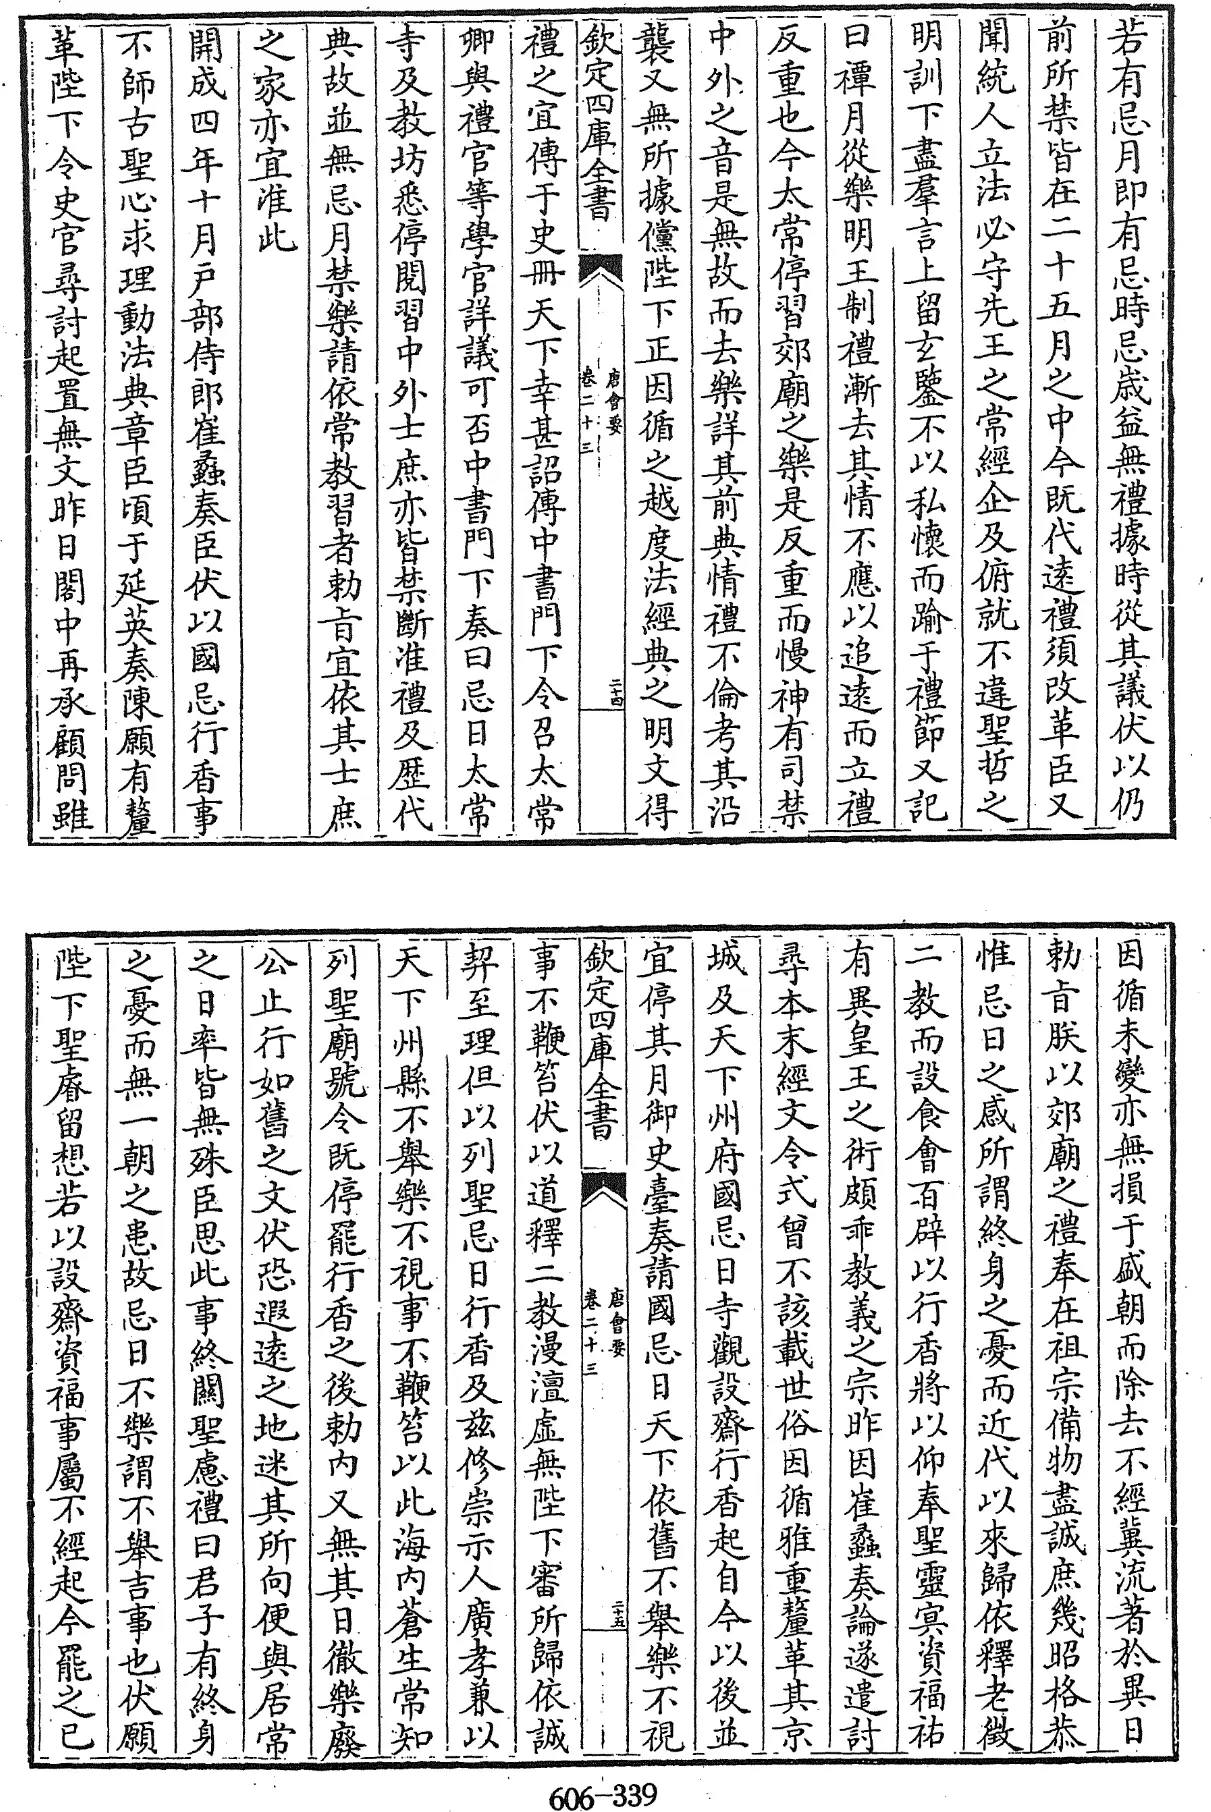 若有忌月即有忌時忌歲益無禮據時從其議伏以仍
前所禁皆在二十五月之中今既代遠禮須改革臣又
聞統人立法必守先王之常經企及俯就不違聖哲之
明訓下盡羣言上留玄鑒不以私懷而踰于禮節又記
曰禫月從樂明王制禮漸去其情不應以追遠而立禮
反重也今太常停習郊廟之樂是反重而慢神有司禁
中外之音是無故而去樂詳其前典情禮不倫考其沿
襲又無所據儻陛下正因循之越度法經典之明文得
欽定四庫全書
唐會要
卷二十三
二十四
禮之宜傳于史冊天下幸甚詔傳中書門下令召太常
卿與禮官等學官詳議可否中書門下奏曰忌日太常
寺及教坊悉停閱習中外士庶亦皆禁斷准禮及歷代
典故並無忌月禁樂請依常教習者勅旨宜依其士庶
之家亦宜准此
開成四年十月戶部侍郎崔蠡奏臣伏以國忌行香事
不師古聖心求理動法典章臣頃于延英奏陳願有釐
革陛下令史官尋討起置無文昨日閣中再承顧問雖
因循未變亦無損于盛朝而除去不經冀流著於異日
勅旨朕以郊廟之禮奉在祖宗備物盡誠庶幾昭格恭
惟忌日之感所謂終身之憂而近代以來歸依釋老徵
二教而設食會百辟以行香將以仰奉聖靈冥資福祐
有異皇王之術頗乖教義之宗昨因崔蠡奏論遂遣討
尋本末經文令式曾不該載世俗因循雅重釐革其京
城及天下州府國忌日寺觀設齋行香起自今以後並
宜停其月御史臺奏請國忌日天下依舊不舉樂不視
欽定四庫全書
唐會要
卷二十三
二十五
事不鞭笞伏以道釋二教漫澶虛無陛下審所歸依誠
契至理但以列聖忌日行香及茲修崇示人廣孝兼以
天下州縣不舉樂不視事不鞭笞以此海內蒼生常知
列聖廟號令既停罷行香之後勅內又無其日徹樂廢
公止行如舊之文伏恐遐遠之地迷其所向便與居常
之日率皆無殊臣思此事終闕聖慮禮曰君子有終身
之憂而無一朝之患故忌日不樂謂不舉吉事也伏願
陛下聖睿留想若以設齋資福事屬不經起今罷之已
606-339